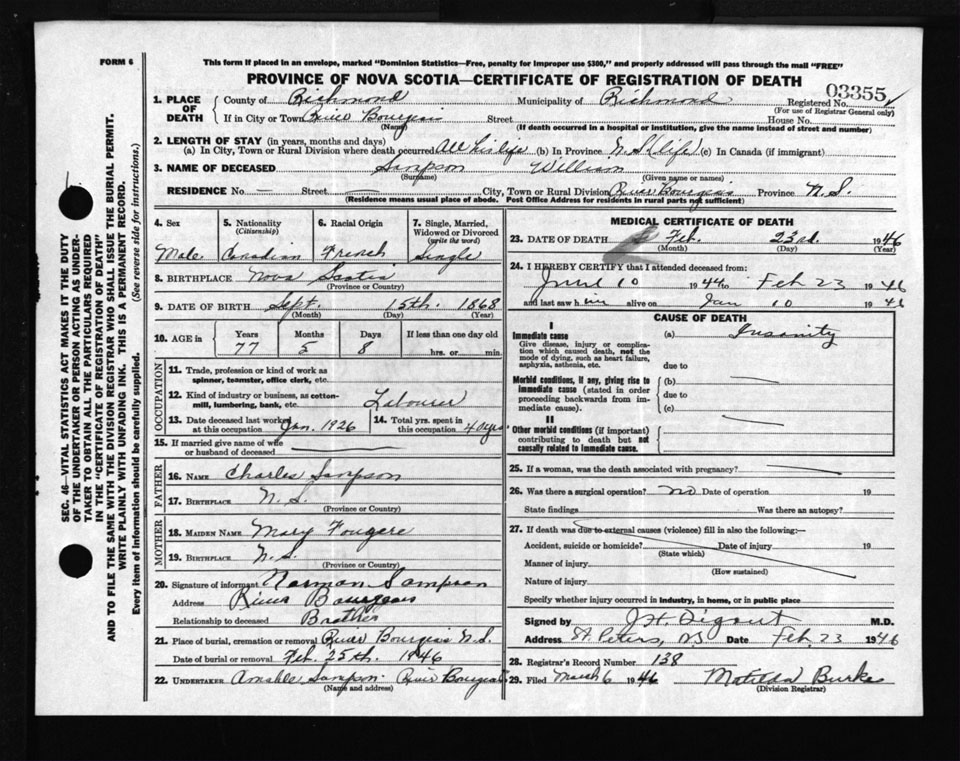 FORM 6
This form if placed in an envelope, marked "Dominion Statistics—Free, penalty for improper use $300," and properly addressed will pass through the mail "FREE"
PROVINCE OF NOVA SCOTIA—CERTIFICATE OF REGISTRATION OF DEATH
03355
1. PLACE OF DEATH
County of Richmond Municipality of Richmond Registered No.
(For use of Registrar General only)
If in City or Town River Bourgeois Street House No.
(Name) (If death occurred in a hospital or institution, give the name instead of street and number)
2. LENGTH OF STAY (in years, months and days)
(a) In City, Town or Rural Division where death occurred All his life (b) In Province N.S. life (c) In Canada (if immigrant)
3. NAME OF DECEASED Sampson William
(Surname) (Given name or names)
RESIDENCE No. — Street — City, Town or Rural Division River Bourgeois Province N.S.
(Residence means usual place of abode. Post Office Address for residents in rural parts not sufficient)
SEC. 46—VITAL STATISTICS ACT MAKES IT THE DUTY
OF THE UNDERTAKER OR PERSON ACTING AS UNDER-
TAKER TO OBTAIN ALL THE PARTICULARS REQUIRED
IN THE "CERTIFICATE OF REGISTRATION OF DEATH"
AND TO FILE THE SAME WITH THE DIVISION REGISTRAR WHO SHALL ISSUE THE BURIAL PERMIT.
WRITE PLAINLY WITH UNFADING INK. THIS IS A PERMANENT RECORD.
Every item of information should be carefully supplied. (See reverse side for instructions.)
4. Sex
Male
5. Nationality
(Citizenship)
Canadian
6. Racial Origin
French
7. Single, Married,
Widowed or Divorced
(write the word)
Single
8. BIRTHPLACE Nova Scotia
(Province or Country)
9. DATE OF BIRTH Sept. 15th. 1868
(Month) (Day) (Year)
10. AGE in Years Months Days If less than one day old
77 5 8 hrs. or min.
OCCUPATION
11. Trade, profession or kind of work as
spinner, teamster, office clerk, etc.
12. Kind of industry or business, as cotton-
mill, lumbering, bank, etc. Labourer
13. Date deceased last worked
at this occupation Jan. 1926
14. Total yrs. spent in
this occupation 40 yrs
15. If married give name of wife
or husband of deceased
FATHER
16. NAME Charles Sampson
17. BIRTHPLACE N.S.
(Province or Country)
MOTHER
18. MAIDEN NAME Mary Fougere
19. BIRTHPLACE N.S.
(Province or Country)
20. Signature of informant Norman Sampson
Address River Bourgeois
Relationship to deceased Brother
21. Place of burial, cremation or removal River Bourgeois N.S.
Date of burial or removal Feb. 25th. 1946
22. UNDERTAKER Amable Sampson River Bourgeois
(Name and address)
MEDICAL CERTIFICATE OF DEATH
23. DATE OF DEATH Feb. 23rd. 1946
(Month) (Day) (Year)
24. I HEREBY CERTIFY that I attended deceased from:
June 10 1944 to Feb 23 1946
and last saw him alive on Jan 10 1946
CAUSE OF DEATH
I
Immediate cause
Give disease, injury or complica-
tion which caused death, not the
mode of dying, such as heart failure,
asphyxia, asthenia, etc.
(a) Insanity
due to
Morbid conditions, if any, giving rise to
immediate cause (stated in order
proceeding backwards from im-
mediate cause).
(b)
due to
(c)
II
Other morbid conditions (if important)
contributing to death but not
causally related to immediate cause.
25. If a woman, was the death associated with pregnancy?
26. Was there a surgical operation? no Date of operation 19
State findings Was there an autopsy?
27. If death was due to external causes (violence) fill in also the following:—
Accident, suicide or homicide? Date of injury 19
(State which)
Manner of injury
(How sustained)
Nature of injury
Specify whether injury occurred in industry, in home, or in public place
Signed by J.H. Digout M.D.
Address St. Peters, N.S. Date Feb. 23 1946
28. Registrar's Record Number 138
29. Filed March 6 1946 Matilda Burke
(Division Registrar)